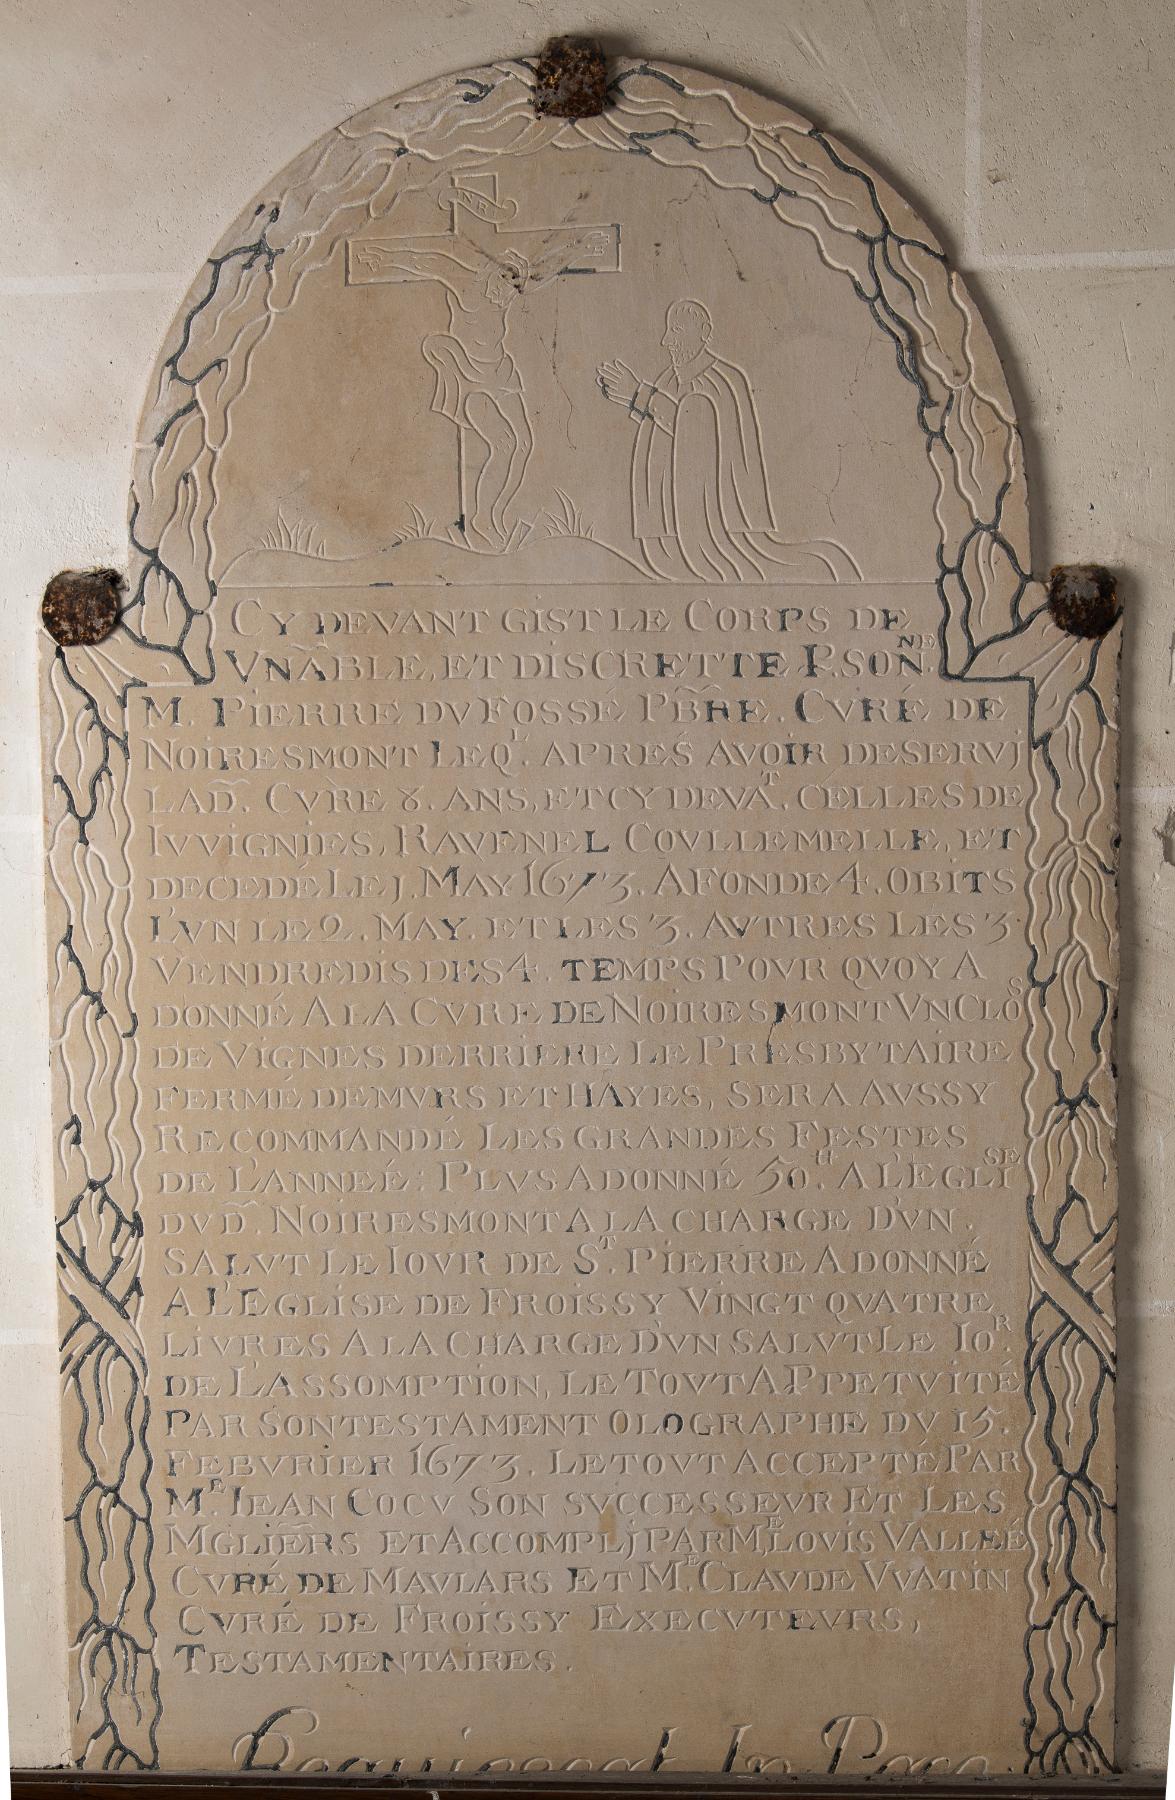 INRI
CY DEVANT GIST LE CORPS DE
VNÃBLE, ET DISCRETTE P.SONᴺᴱ.
M. PIERRE DV FOSSE PB̃RE. CVRÉ DE
NOIRESMONT LEQᴸ. APRES AVOIR DESERVJ
LAD̃. CVRE 8. ANS, ET CY DEVAᵀ. CELLES DE
IVVIGNIES, RAVENEL COVLLEMELLE, ET
DECEDÉ LE J. MAY 1673. A FONDE 4. OBITS
L'VN LE 2. MAY. ET LES 3. AVTRES LES 3.
VENDREDIS DES 4. TEMPS POVR QVOY A
DONNÉ A LA CVRE DE NOIRESMONT VN CLOˢ
DE VIGNES DERRIERE LE PRESBYTAIRE
FERMÉ DE MVRS ET HAYES, SERA AVSSY
RECOMMANDÉ LES GRANDES FESTES
DE L'ANNEÉ: PLVS A DONNÉ 50ᵗᵗ. A L'EGLIˢᴱ
DVD̃. NOIRESMONT A LA CHARGE D'VN.
SALVT LE IOVR DE Sᵀ. PIERRE A DONNÉ
A L'EGLISE DE FROISSY VINGT QVATRE
LIVRES A LA CHARGE D'VN SALVT LE IOᴿ.
DE L'ASSOMPTION, LE TOVT A PPETVITÉ
PAR SON TESTAMENT OLOGRAPHE DV 15.
FEBVRIER 1673. LE TOVT ACCEPTÉ PAR
Mᴱ. IEAN COCV SON SVCCESSEVR ET LES
MGLIER̃S ET ACCOMPLJ PAR Mᴱ. LOVIS VALLEÉ
CVRÉ DE MAVLARS ET Mᴱ. CLAVDE VVATIN
CVRÉ DE FROISSY EXECVTEVRS,
TESTAMENTAIRES.
Requiescat In Pace